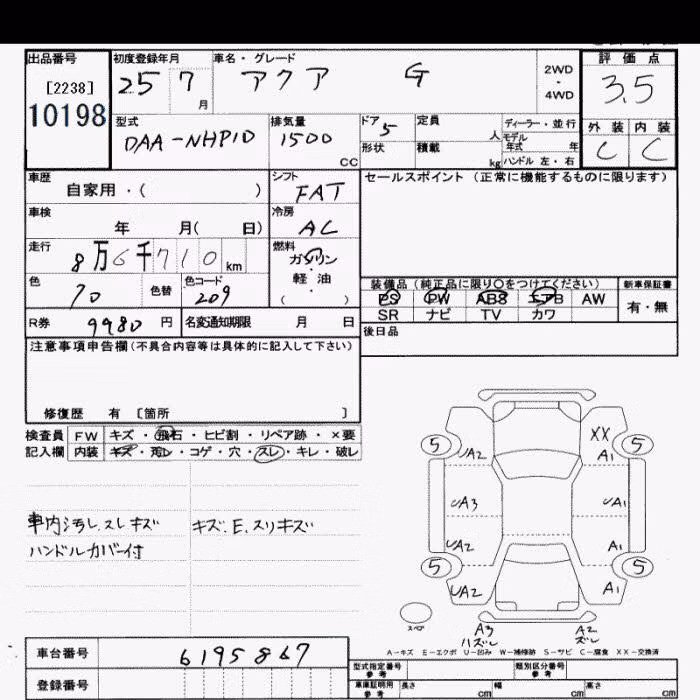 出品番号 初度登録年月 車名・グレード 評価点
[2238] 25 7月 アクア G 2WD・4WD 3.5
10198
型式 排気量 ドア 定員 ディーラー・並行 外装 内装
DAA-NHP10 1500 CC 5 人 モデル年式 年 C C
形状 積載 kg ハンドル 左・右
車歴 シフト セールスポイント（正常に機能するものに限ります）
自家用・（ ） FAT
車検 冷房
年 月（ 日） AC
走行 燃料
8万6千710km ガソリン
軽油
（ ）
色 色替 色コード 装備品（純正品に限り○をつけてください） 新車保証書
70 209 PS PW ABS エアB AW 有・無
SR ナビ TV カワ
R券 9980円 名変通知期限 月 日 後日品
注意事項申告欄（不具合内容等は具体的に記入して下さい）
修復歴 有 〔箇所 〕
検査員 FW キズ・飛石・ヒビ割・リペア跡・×要
記入欄 内装 キズ・汚レ・コゲ・穴・スレ・キレ・破レ
車内汚レ.スレキズ キズ.E.スリキズ
ハンドルカバー付
XX
5 A1 5
UA2
UA3 UA1
UA2 A1
5 5
UA2 A1
スペア A3 A2
ハズレ ズレ
A－キズ E－エクボ U－凹み W－補修跡 S－サビ C－腐食 XX－交換済
車台番号 6195867 型式指定番号 参考 類別区分番号 参考
登録番号 車庫証明用 参考 長さ cm 幅 cm 高さ cm